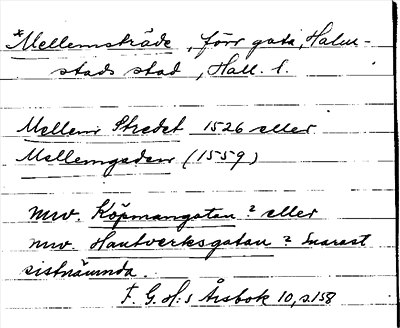 *Mellemsträde, förr gata, Halm-
stads stad, Hall. l.
Mellem Stredet 1526 eller
Mellemgaden (1559)
nuv. Köpmangatan? eller
nuv. Hantverksgatan? Snarast
sistnämnda.
F. G. H:s Årsbok 10, s. 158